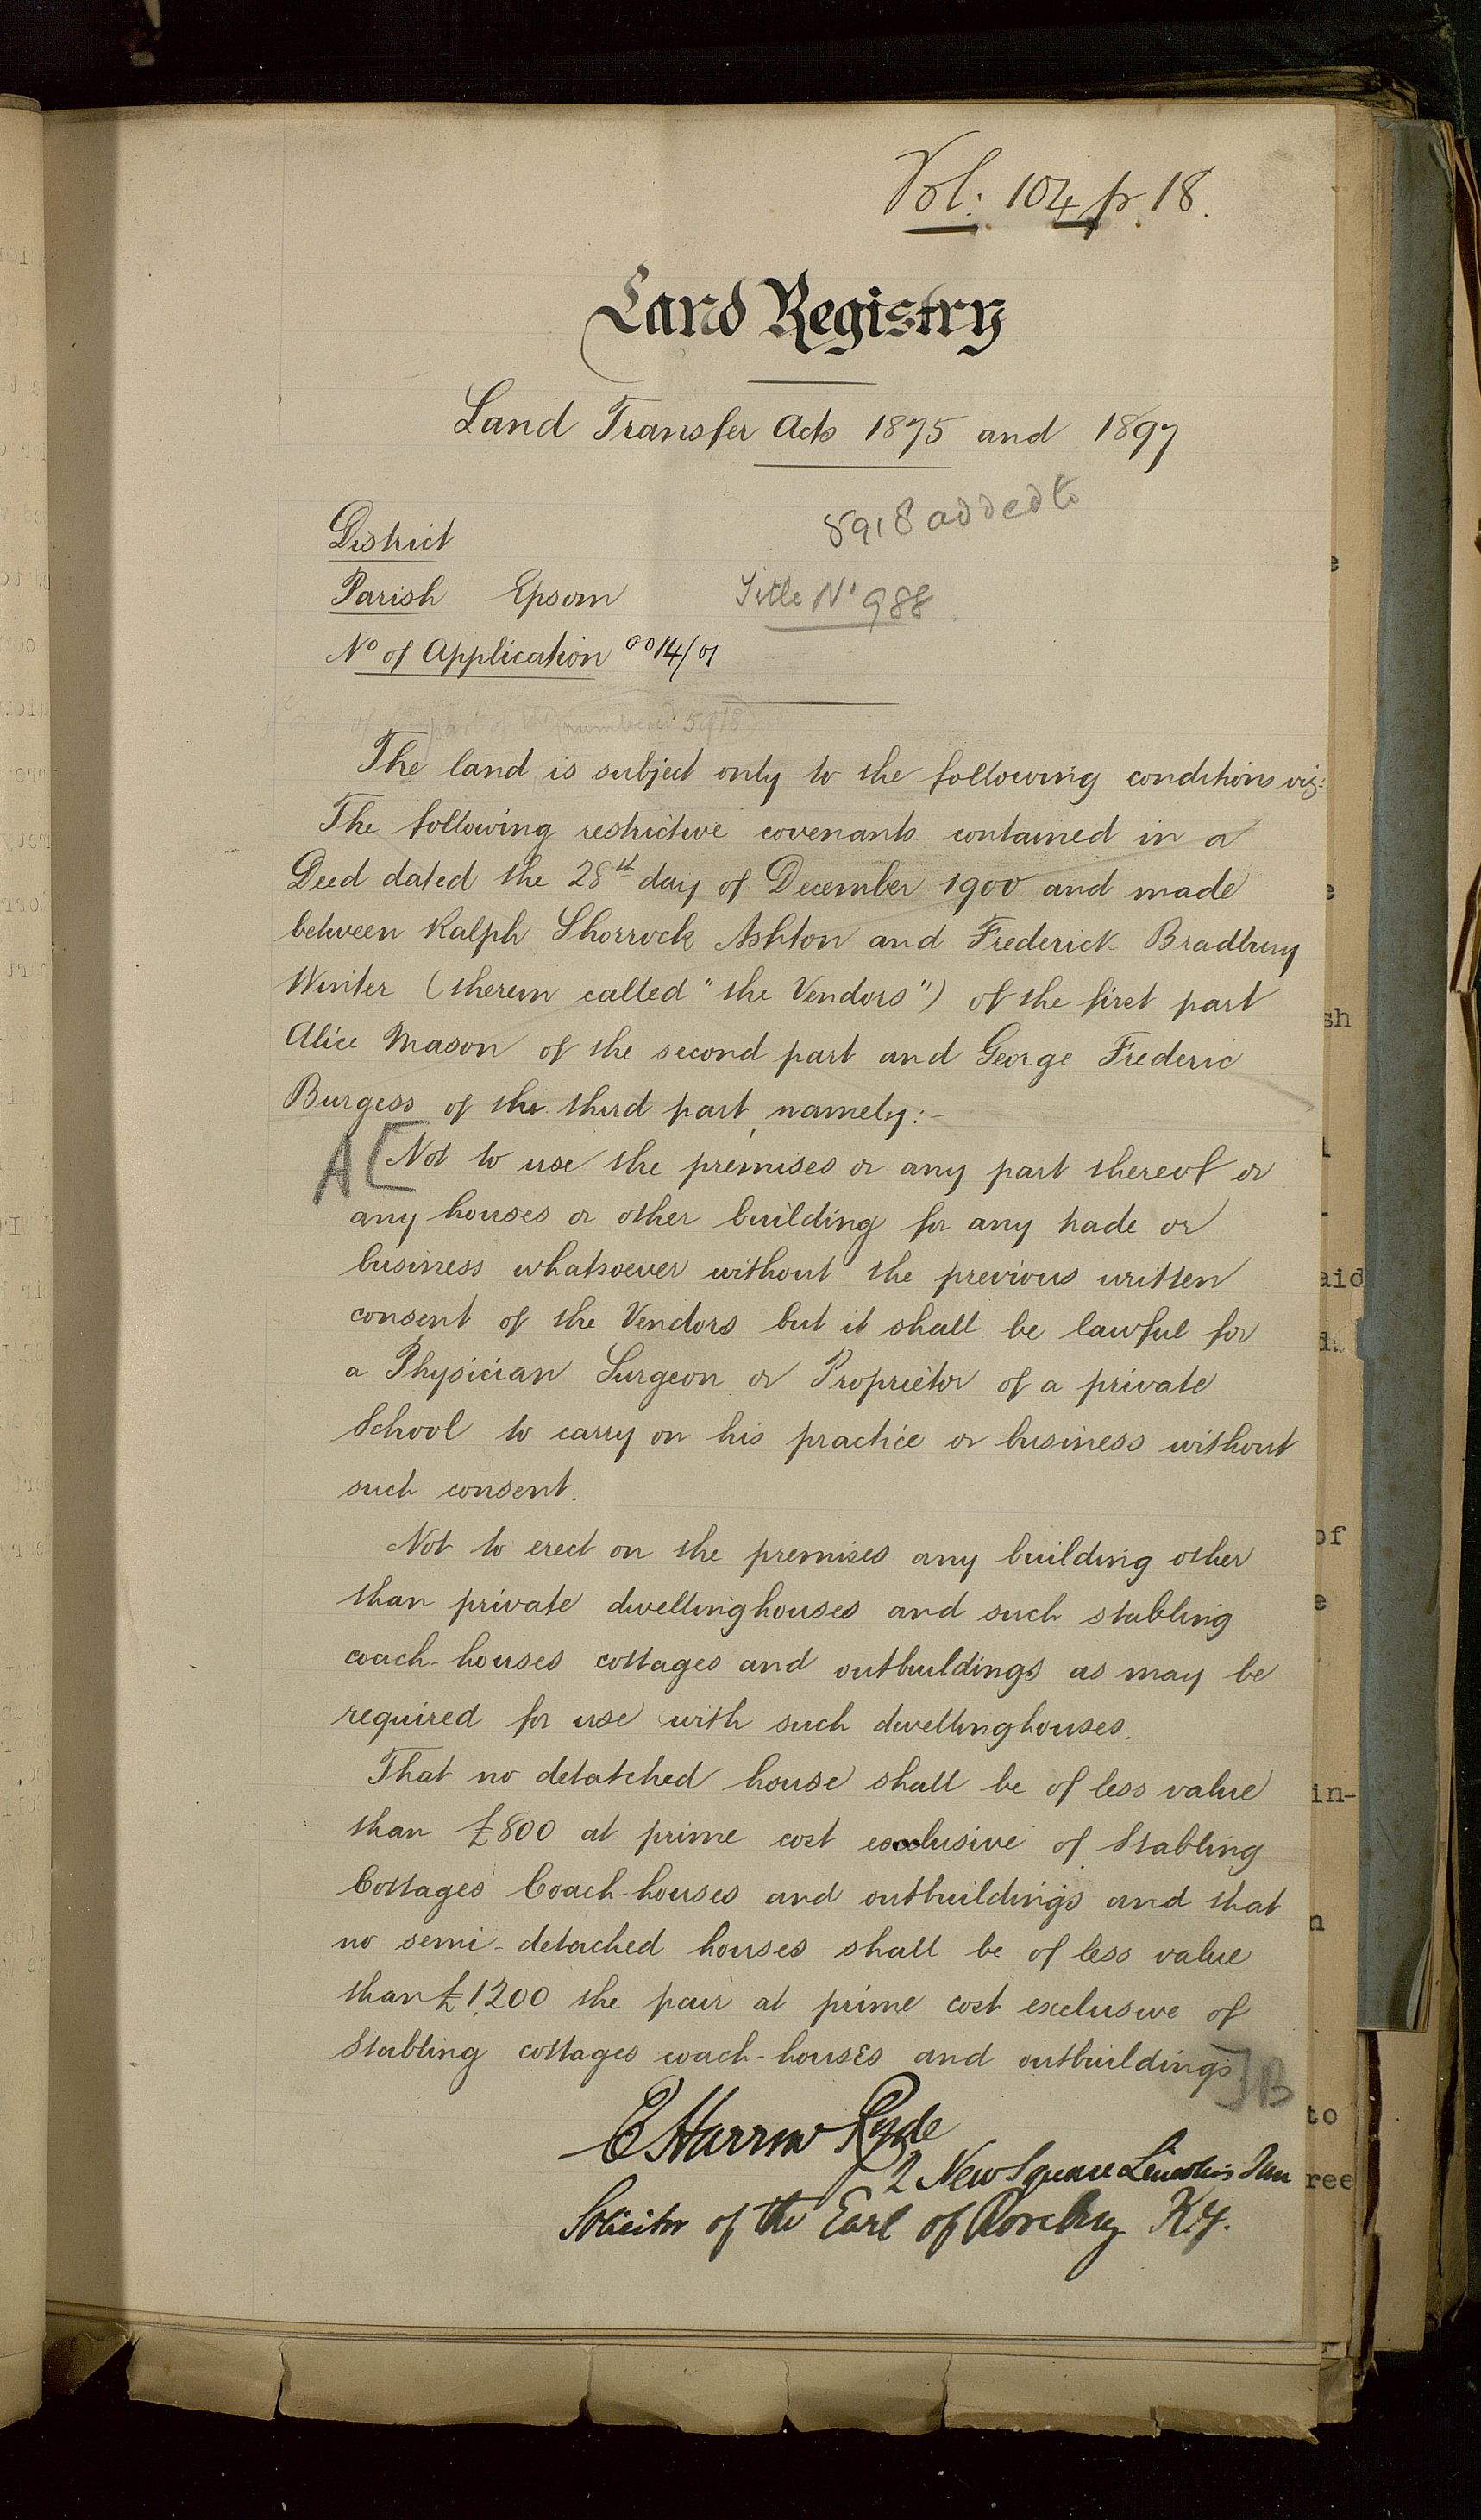 Vol: 104 p 18.
Land Registry
Land Transfer Acts 1875 and 1897
5918 added to
District
Parish Epsom
Title No 988
No of Application 0014/01
part of numbered 5918
The land is subject only to the following conditions viz:
The following restrictive covenants contained in a
Deed dated the 28th day of December 1900 and made
between Ralph Shorrock Ashton and Frederick Bradbury
Winter (therein called "the Vendors") of the first part
Alice Mason of the second part and George Frederic
Burgess of the third part, namely:-
A[ Not to use the premises or any part thereof or
any houses or other building for any trade or
business whatsoever without the previous written
consent of the Vendors but it shall be lawful for
a Physician Surgeon or Proprietor of a private
School to carry on his practice or business without
such consent.
Not to erect on the premises any building other
than private dwellinghouses and such stabling
coach-houses cottages and outbuildings as may be
required for use with such dwellinghouses.
That no detatched house shall be of less value
than £800 at prime cost exclusive of Stabling
Cottages Coach-houses and outbuildings and that
no semi-detached houses shall be of less value
than £1,200 the pair at prime cost exclusive of
Stabling cottages coach-houses and outbuildings ]B
E Harrow Ryde
2 New Square Lincoln's Inn
Solicitor of the Earl of Rosebery K.G.
e
e
sh
aid
of
e
in-
n
to
ree